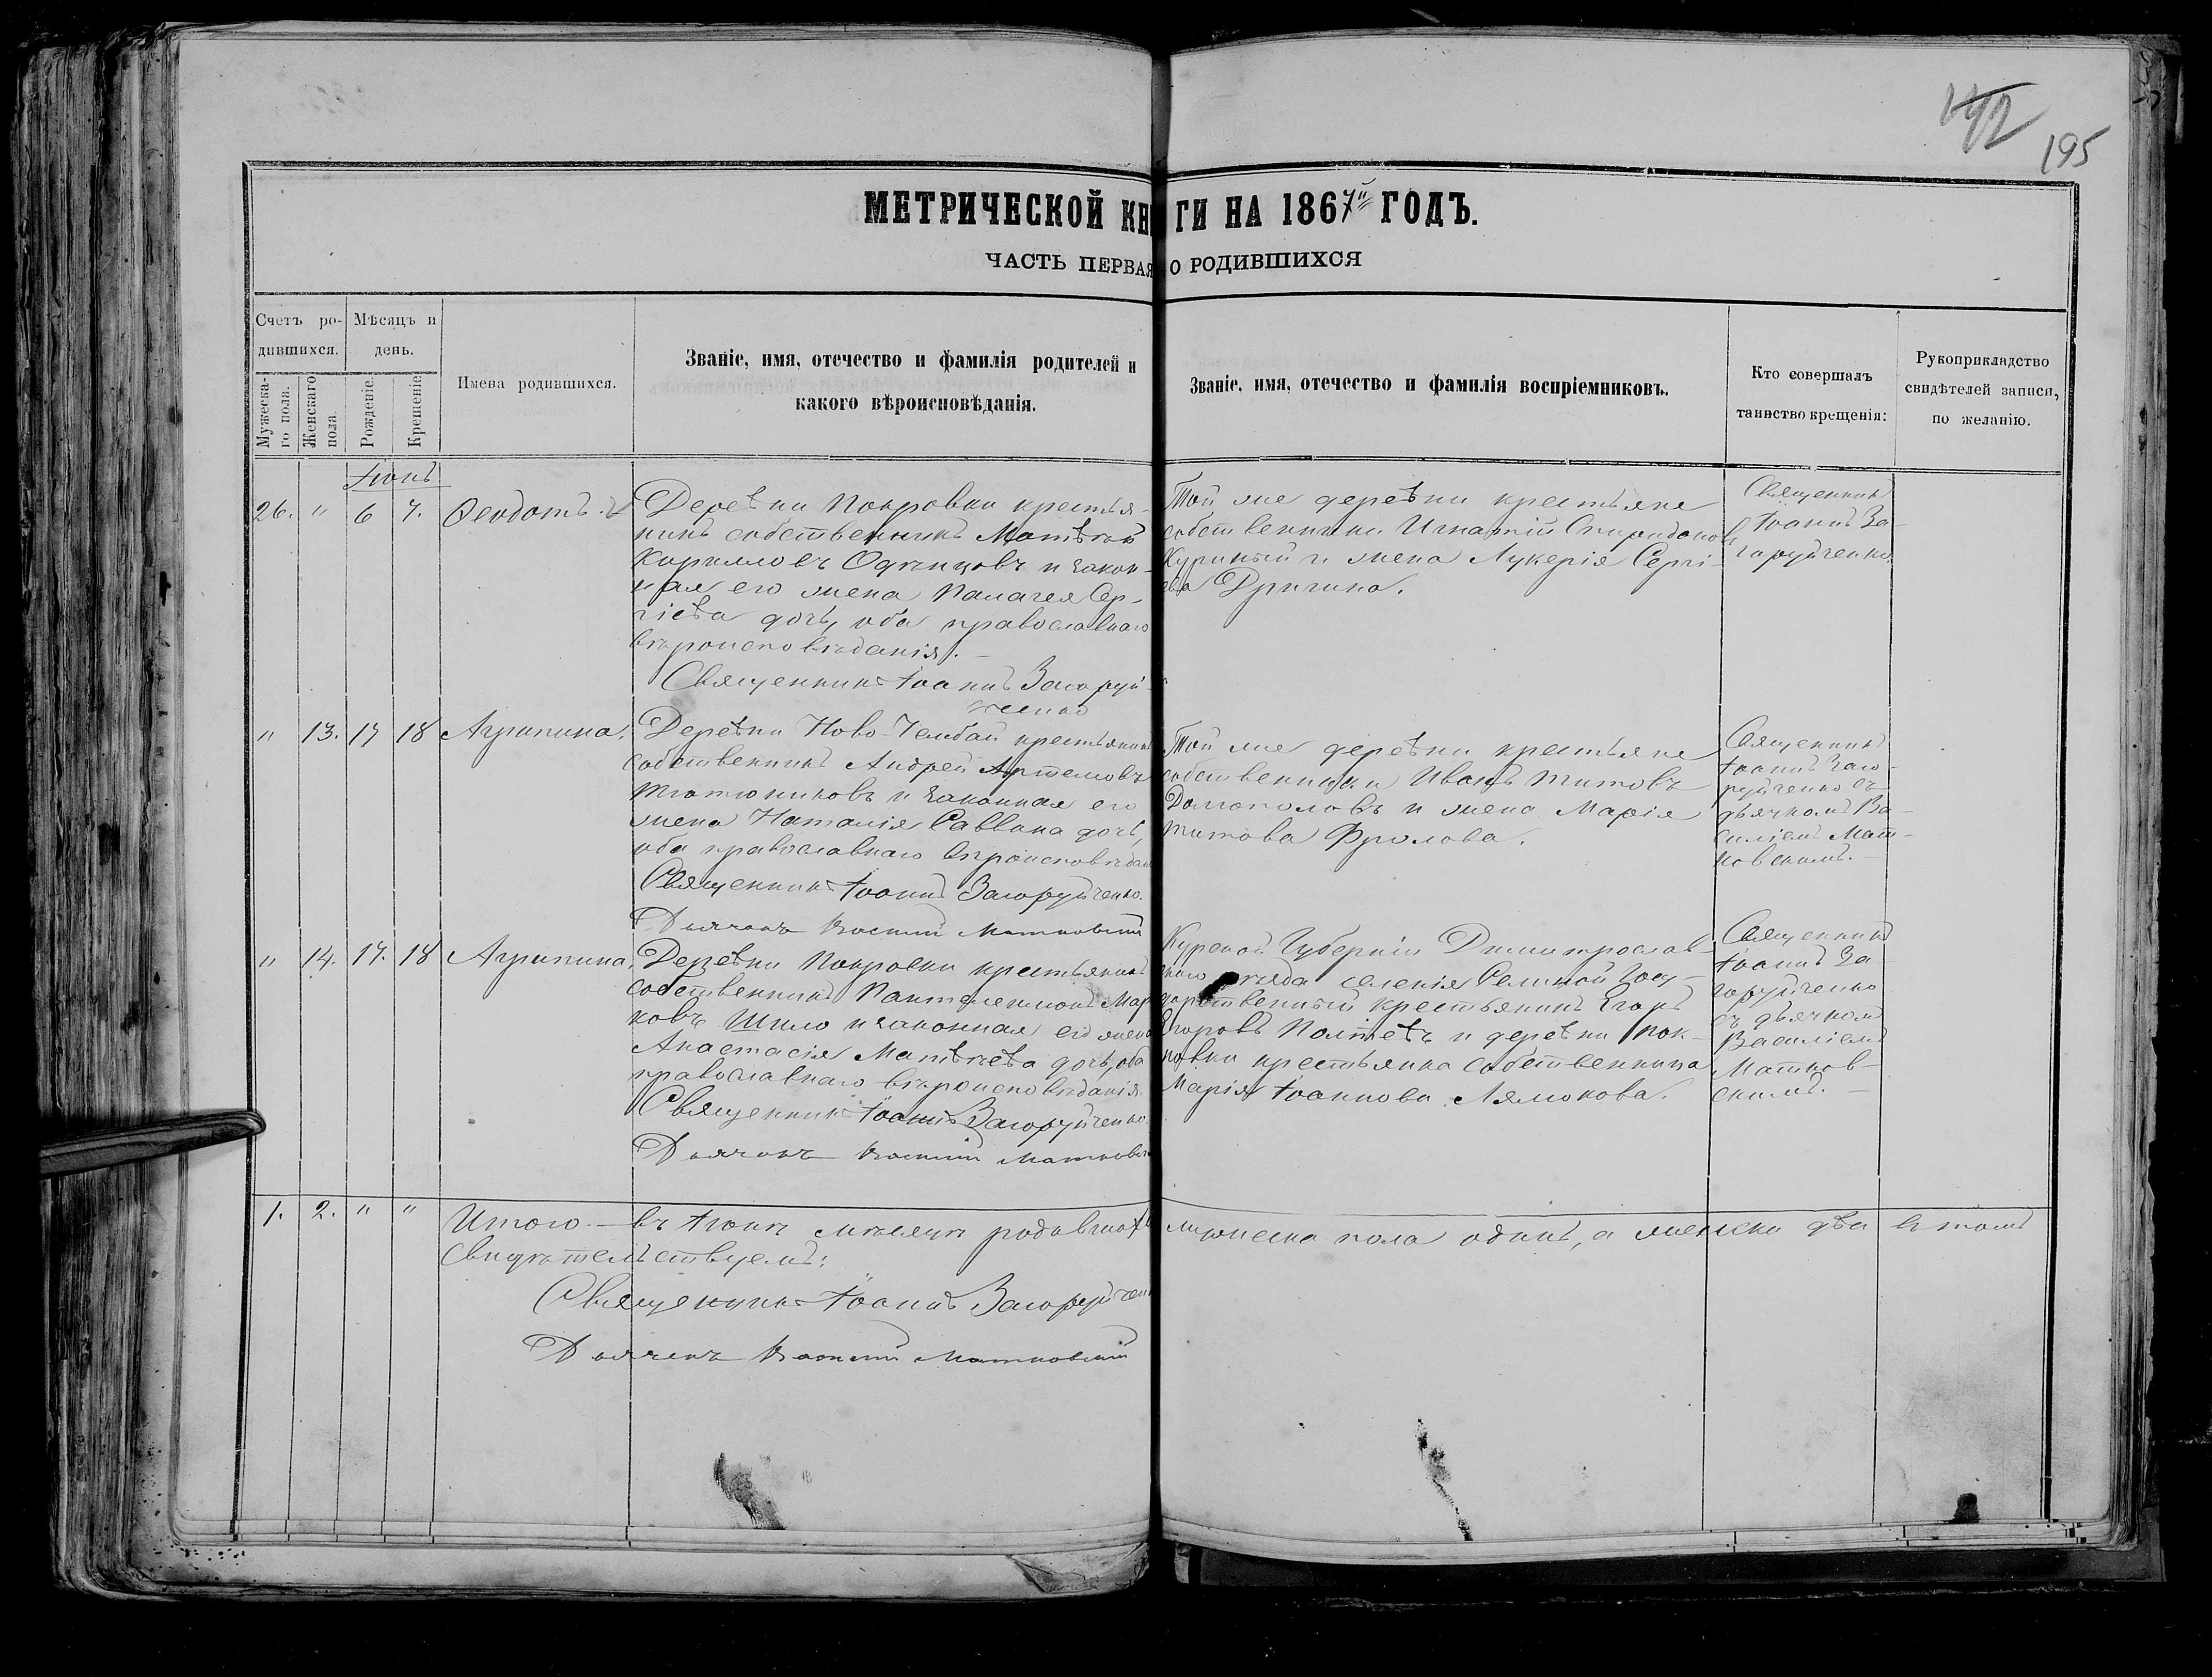 195
МЕТРИЧЕСКОЙ КНИГИ НА 1867й ГОДЪ.
ЧАСТЬ ПЕРВАЯ О РОДИВШИХСЯ
Счетъ ро-
дившихся.
Мужеска-
го пола.
Женскаго
пола.
Мѣсяцъ и
день.
Рожденіе.
Крещеніе
Имена родившихся.
Званіе, имя, отечество и фамилія родителей и
какого вѣроисповѣданія.
Званіе, имя, отечество и фамилія воспріемниковъ.
Кто совершалъ
таинство крещенія:
Рукоприкладство
свидѣтелей записи,
по желанію.
Іюнь
26. " 6 7. Ѳеодотъ.
Деревни Покровки крестья-
нинъ собственникъ Матвѣй
Кирилловъ Одинцовъ и закон-
ная его жена Палагея Сер-
гіева дочь, оба православнаго
вѣроисповѣданія.
Священникъ Іоаннъ Загоруй-
ченко
Той же деревни крестьяне
собственники Игнатій Спиридоновъ
и жена Лукерія Сергі-
ева
Священникъ
Іоаннъ За-
горуйченко.
" 13. 17 18 Агрипина.
Деревни Ново-Чембай крестьянинъ
собственникъ Андрей Артемовъ
Тютюниковъ и законная его
жена Наталія Саввина дочь,
оба православнаго вѣроисповѣдан
Священникъ Іоаннъ Загоруйченко.
Дьячокъ Василій Матковскій
Той же деревни крестьяне
собственники Иванъ Титовъ
Долгополовъ и жена Марія
Титова Фролова.
Священникъ
Іоаннъ Заго-
руйченко съ
дьячкомъ Ва-
силіемъ Мат-
ковскимъ.
" 14. 17. 18 Агрипина.
Деревни Покровки крестьянинъ
собственникъ Пантелеимонъ Мар
ковъ Шило и законная его жена
Анастасія Матвѣева дочь, оба
православнаго вѣроисповѣданія.
Священникъ Іоаннъ Загоруйченко.
Дьячокъ Василій Матковскій
Курской Губерніи Димитрослав-
скаго уѣзда селенія Госу-
дарственный крестьянинъ Егоръ
Егоровъ и деревни Пок-
ровки крестьянка собственница
Марія Іоаннова
Священникъ
Іоаннъ За-
горуйченко
съ дьячкомъ
Василіемъ
Матков-
скимъ.
1. 2. " " Итого - въ Іюнѣ мѣсяцѣ родившихъ мужеска пола одинъ, а женска два въ томъ
свидѣтельствуемъ:
Священникъ Іоаннъ Загоруйчен
Дьячекъ Василій Матковскій